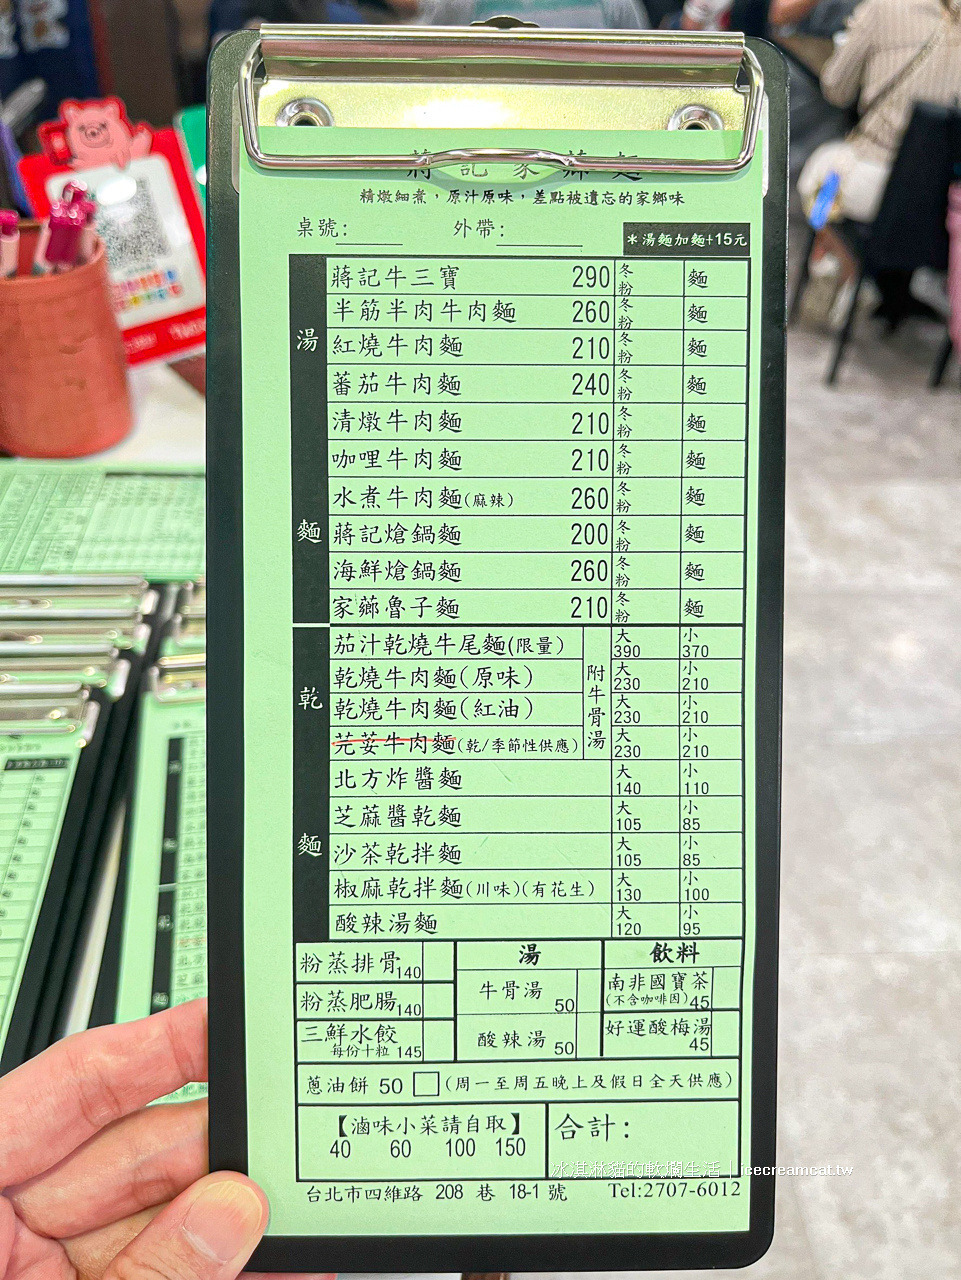 蔣記家薌麵
精燉細煮，原汁原味，差點被遺忘的家鄉味
桌號： 外帶：
＊湯麵加麵+15元
湯麵
蔣記牛三寶 290 冬粉 麵
半筋半肉牛肉麵 260 冬粉 麵
紅燒牛肉麵 210 冬粉 麵
蕃茄牛肉麵 240 冬粉 麵
清燉牛肉麵 210 冬粉 麵
咖哩牛肉麵 210 冬粉 麵
水煮牛肉麵(麻辣) 260 冬粉 麵
蔣記熗鍋麵 200 冬粉 麵
海鮮熗鍋麵 260 冬粉 麵
家薌魯子麵 210 冬粉 麵
乾麵
附牛骨湯
茄汁乾燒牛尾麵(限量) 大390 小370
乾燒牛肉麵(原味) 大230 小210
乾燒牛肉麵(紅油) 大230 小210
芫荽牛肉麵(乾/季節性供應) 大230 小210
北方炸醬麵 大140 小110
芝蔴醬乾麵 大105 小85
沙茶乾拌麵 大105 小85
椒麻乾拌麵(川味)(有花生) 大130 小100
酸辣湯麵 大120 小95
粉蒸排骨140
粉蒸肥腸140
三鮮水餃
每份十粒 145
湯
牛骨湯 50
酸辣湯 50
飲料
南非國寶茶
(不含咖啡因)45
好運酸梅湯
45
蔥油餅 50 □ (周一至周五晚上及假日全天供應)
【滷味小菜請自取】
40 60 100 150
合計：
冰淇淋貓的軟爛生活｜icecreamcat.tw
台北市四維路 208 巷 18-1 號 Tel:2707-6012